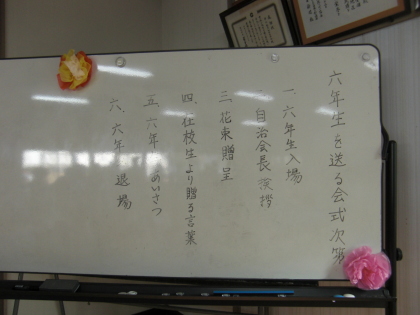 六年生を送る会式次第
一、六年生入場
二、自治会長演挨拶
三、花束贈呈
四、在校生より贈る言葉
五、六年生あいさつ
六、六年生退場